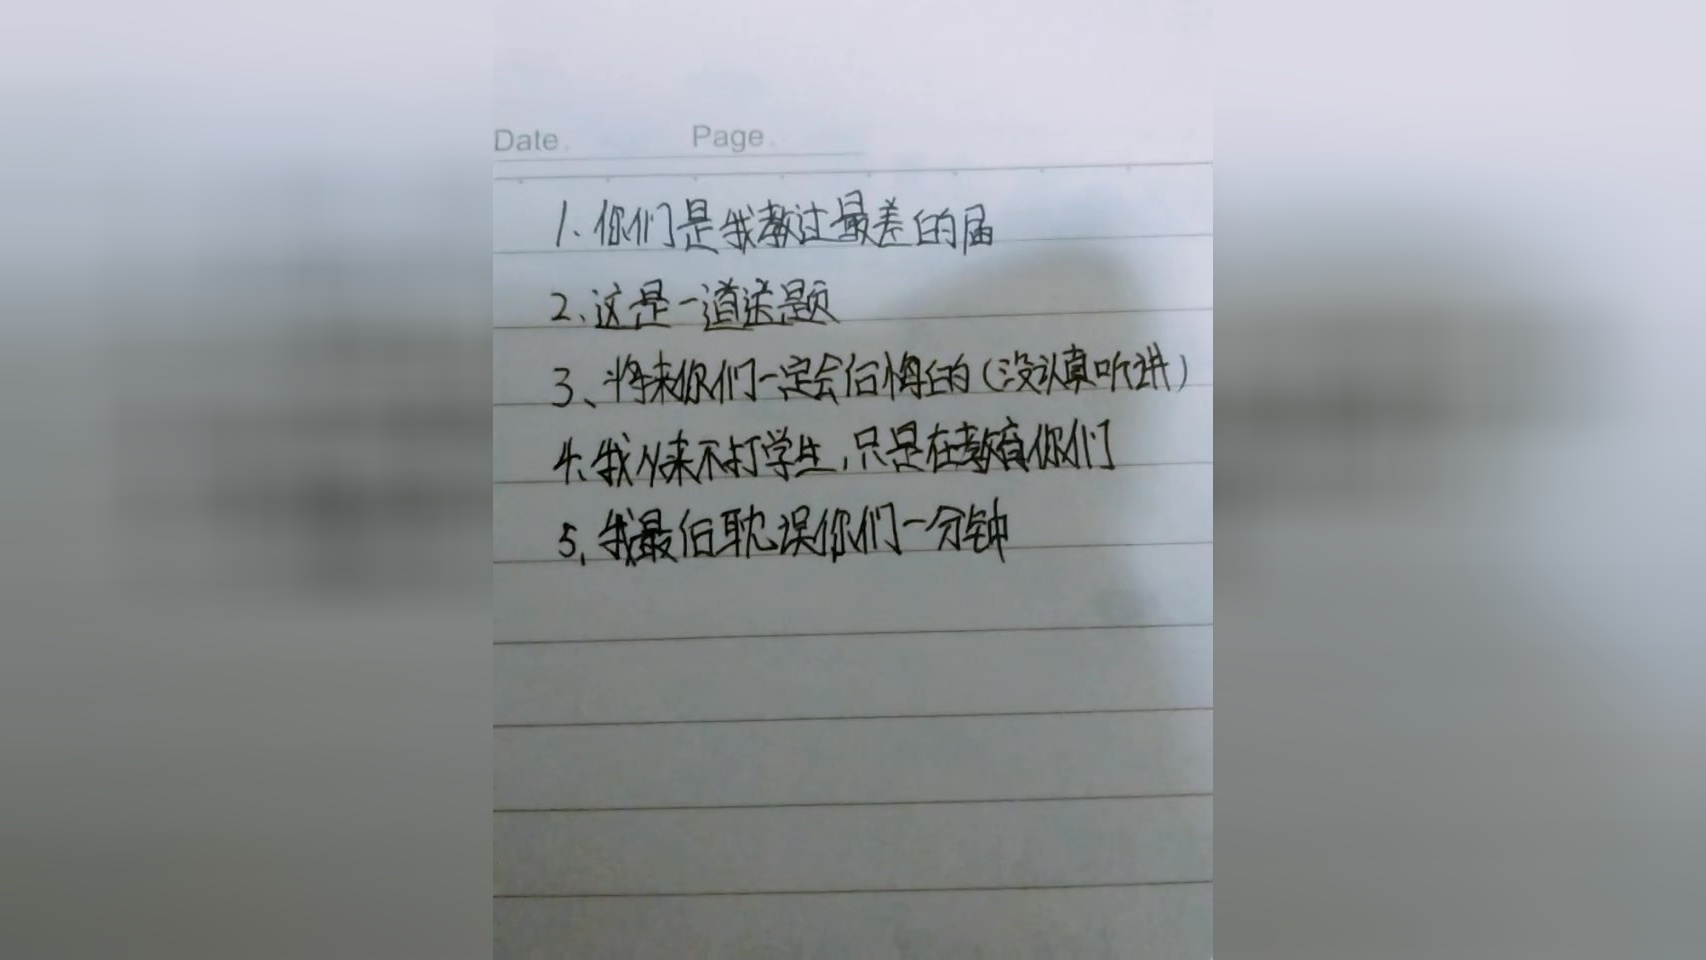 Date.
Page.
1、你们是我教过最差的届
2、这是一道送题
3、将来你们一定会后悔的(没认真听讲)
4、我从来不打学生,只是在教育你们
5、我最后耽误你们一分钟